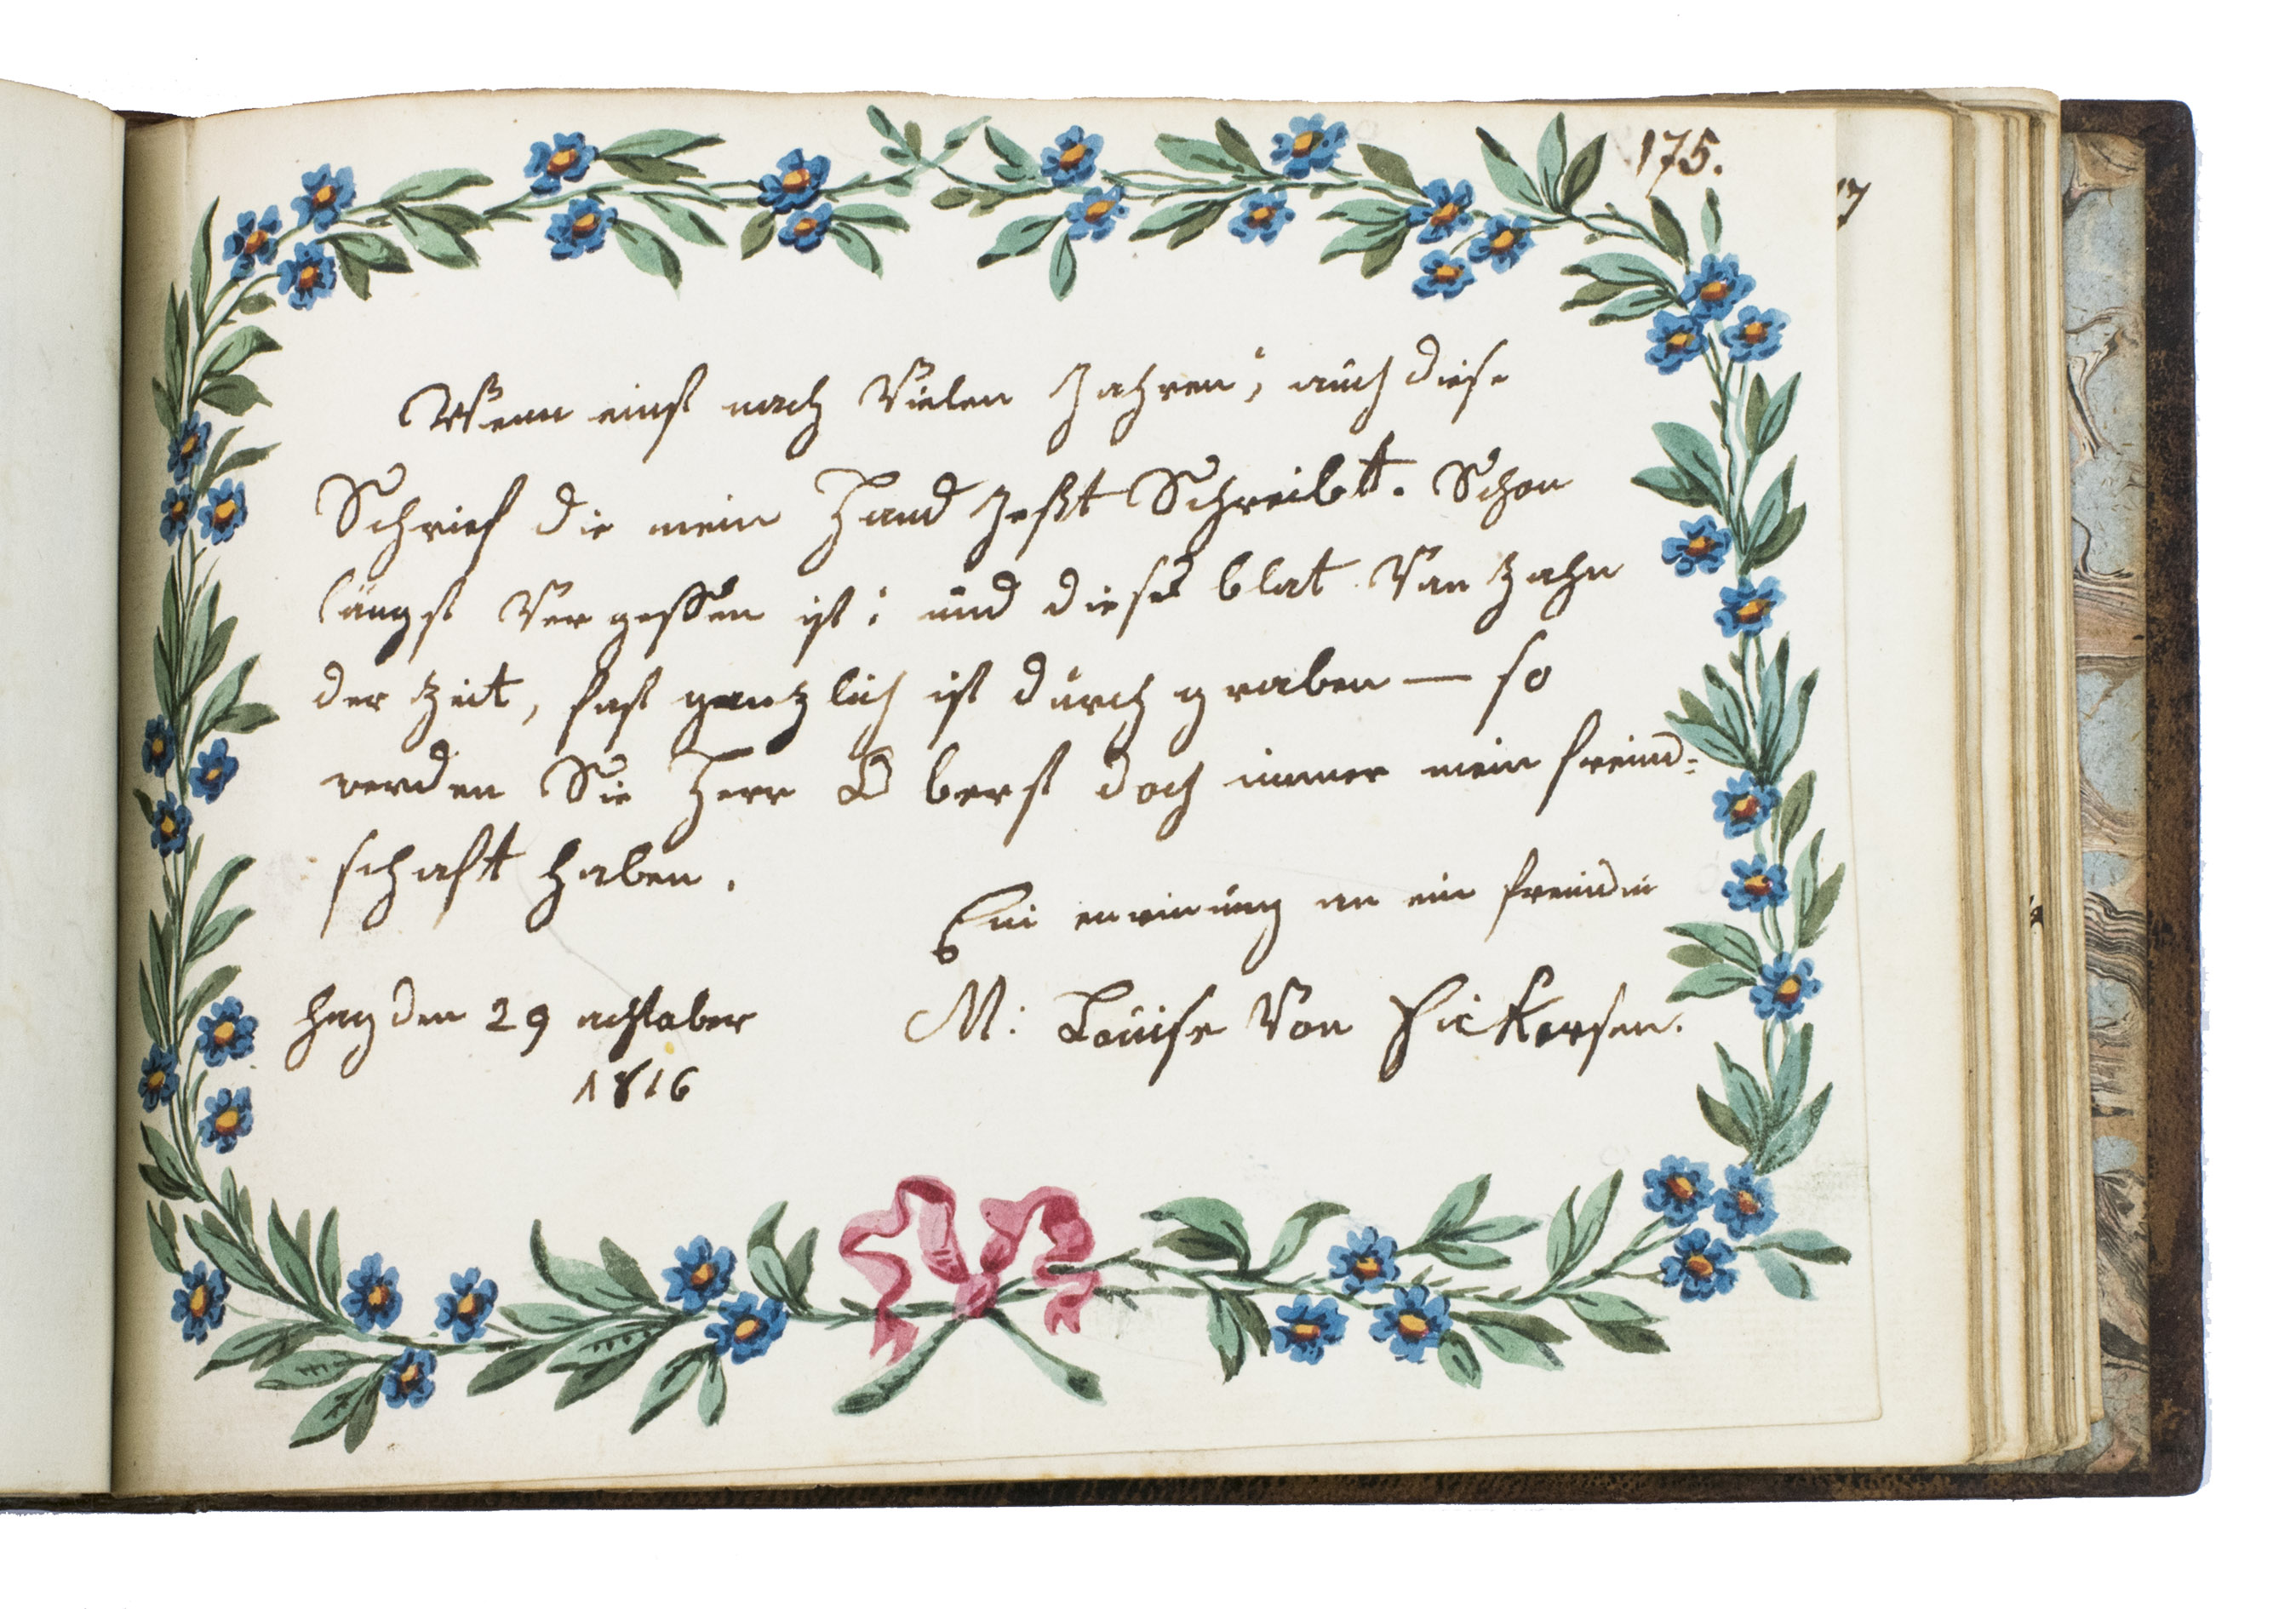 175.
Wenn einst nach Vielen Jahren, auch diese
Schrief die mein Hand Jeßt Schreibtt. Schon
längst Ver geßen ist; und dieses blat Van Zahn
der Zeit, fast gantzlich ist durch graben — so
werden Sie Herr O berst doch immer mein freund-
schaft haben.
Ein an ein freundin
hag den 29 
M: Louise Von
1816